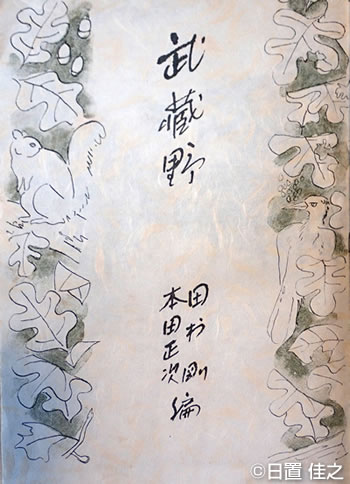 武蔵野
田村剛
本田正次編
©日置 佳之